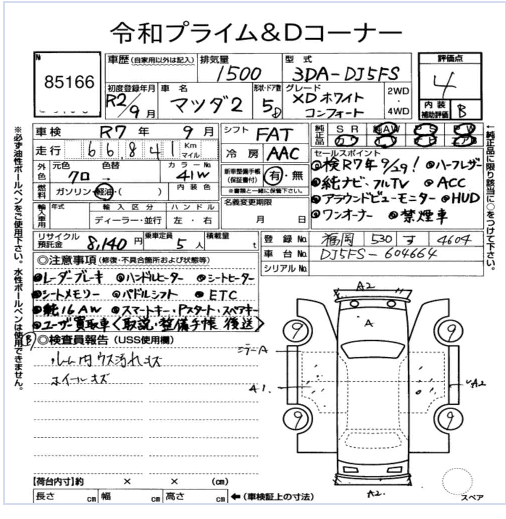 令和プライム&Dコーナー
No 85166
車歴 (自家用以外は記入) 排気量 1500 型式 3DA-DJ5FS
評価点 4
内装補助評価 B
初度登録年月 R2/9月 車名 マツダ2 形状・ドア数 5D グレード XDホワイトコンフォート 2WD・4WD
車検 R7年9月 シフト FAT
純正品 SR AW
走行 66,841 Km マイル 冷房 AAC
外色 元色 クロ 色替 カラーNo. 41W
燃料 ガソリン・軽油・( ) 内装色
新車整備手帳(保証書付) 有・無
※書類と一緒に保管下さい。
セールスポイント
◎検R7年9/29! ◎ハーフレザー
◎純ナビ・フルTV ◎ACC
◎アラウンドビューモニター ◎HUD
◎ワンオーナー ◎禁煙車
輸入車用 年式 輸入区分 ハンドル
ディーラー・並行 左・右
名義変更期限 月 日
リサイクル預託金 8,140円 乗車定員 5人 積載量 t
登録No. 福岡 530 す 4604
車台No. DJ5FS-604664
シリアルNo.
◎注意事項 (修復・不具合箇所および状態等)
◎レーダブレーキ ◎ハンドルヒーター ◎シートヒーター
◎シートメモリー ◎パドルシフト ◎ETC
◎純16AW ◎スマートキー・Pスタート・スペアキー
◎ユーザー買取車〈取説・整備手帳 後送〉
◎検査員報告 (USS使用欄)
ルーム内ウス汚れキズ
ホイールキズ
A2
A
ミラーA
A1
A2
A2
スペア
【荷台内寸】約 × × (cm)
長さ cm 幅 cm 高さ cm ←(車検証上の寸法)
※必ず油性ボールペンをご使用下さい。水性ボールペンは使用できません。
←純正品に限り該当に○をつけて下さい。